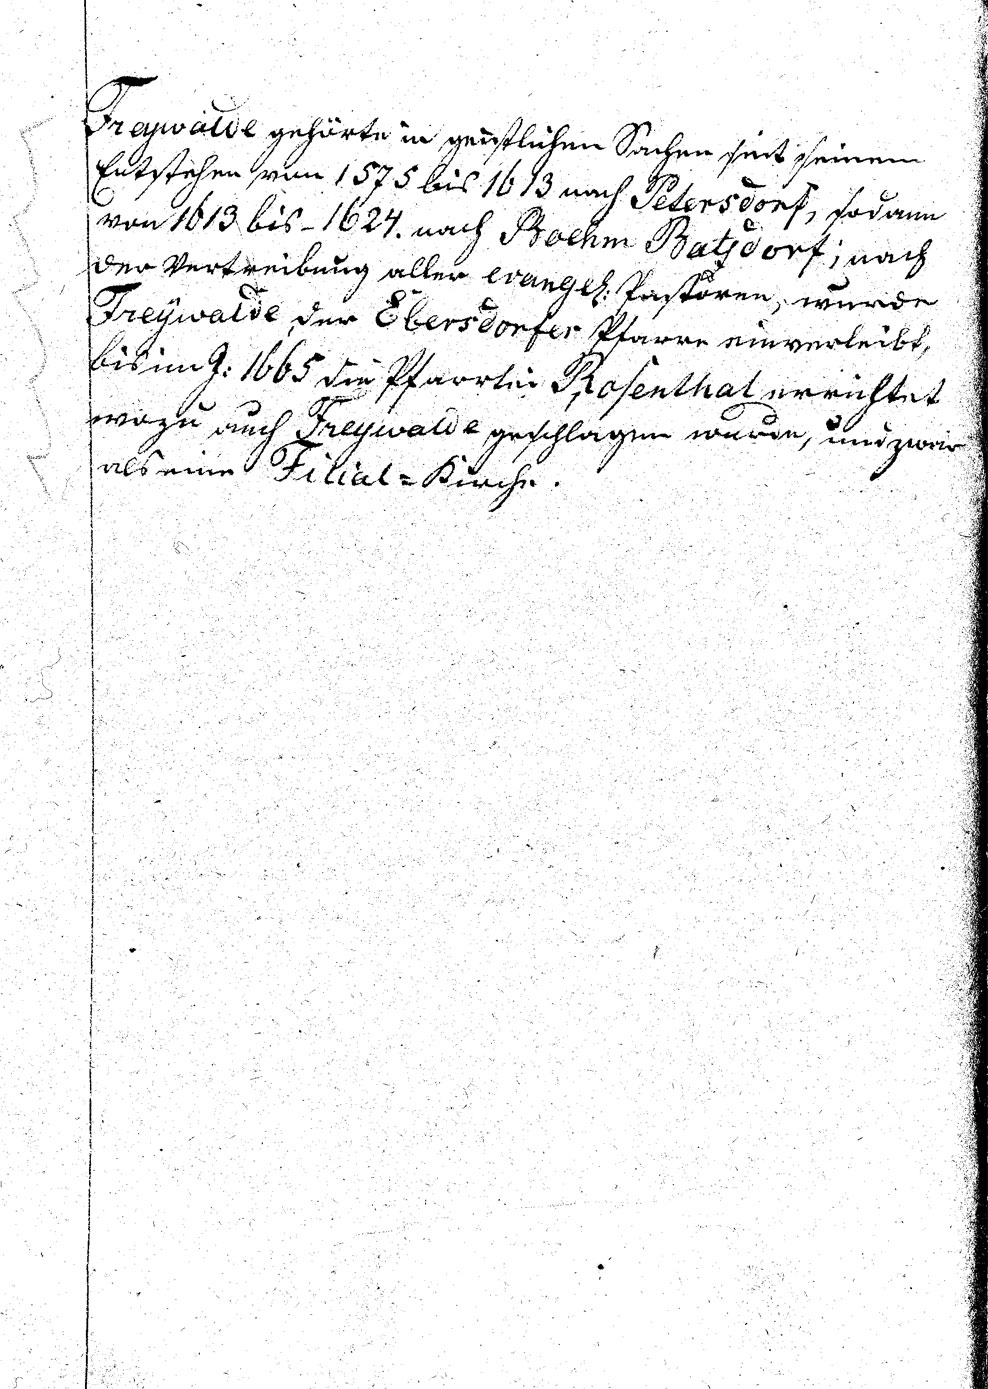 Freywalde gehörte in geistlichen Sachen seit seinem
Entstehen von 1575 bis 1613 nach Petersdorf, sodann
von 1613 bis - 1624. nach Boehm Batzdorf; nach
der Vertreibung aller evangel: Pastoren, wurde
Freywalde der Ebersdorfer Pfarre einverleibt,
bis im J: 1665 die Pfarrtei Rosenthal errichtet
wozu auch Freywalde geschlagen wurde, und zwar
als eine Filial = Kirche.